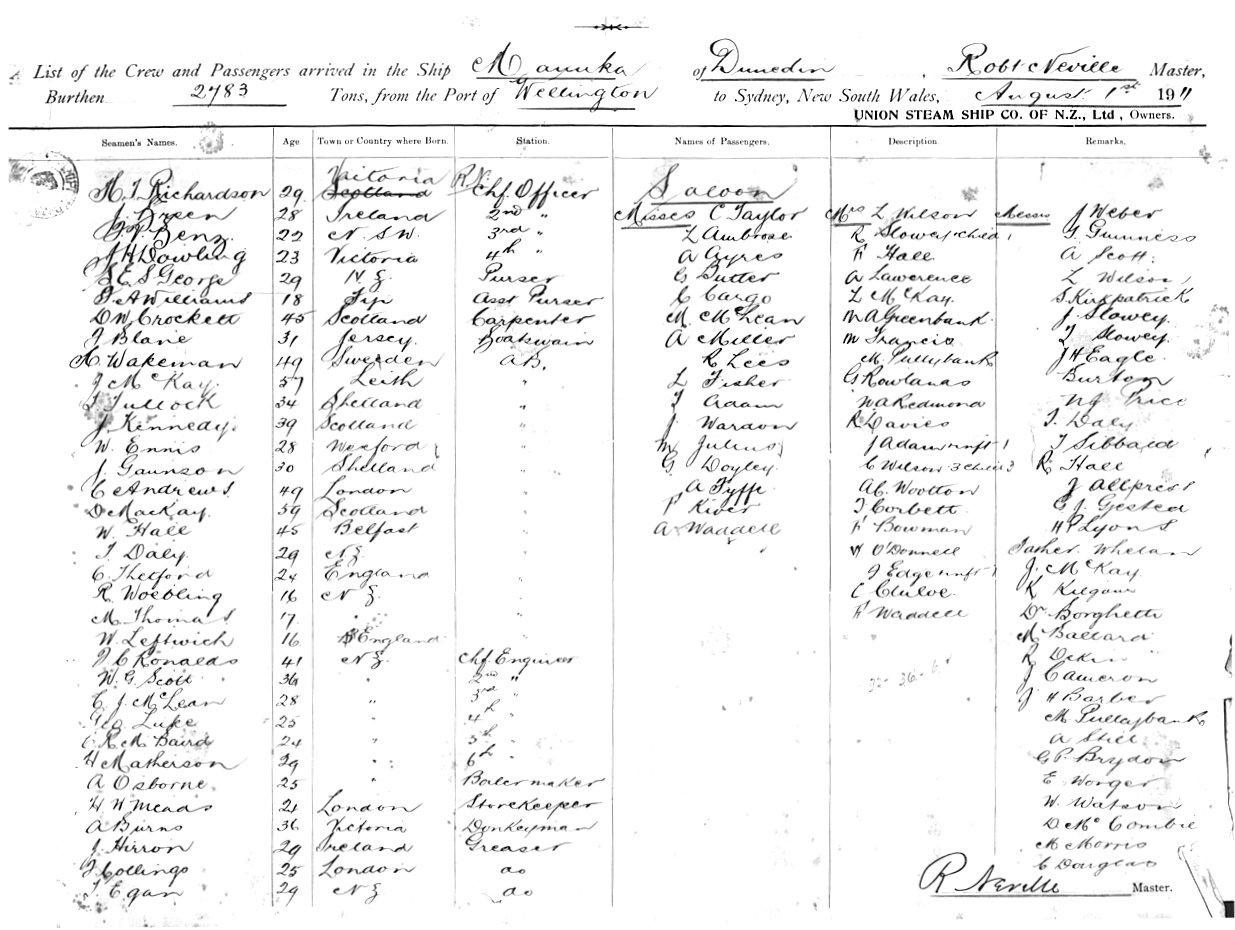 List of the Crew and Passengers arrived in the Ship Manuka of Dunedin, Robt Neville Master,
Burthen 2783 Tons, from the Port of Wellington to Sydney, New South Wales, August 1st 1911
UNION STEAM SHIP CO. OF N.Z., Ltd, Owners.
Seamen's Names. Age Town or Country where Born. Station. Names of Passengers. Description. Remarks.
Victoria
Richardson 29 Scotland Chf. Officer Saloon
J Green 28 Ireland 2nd " Misses C Taylor Mrs L Wilson Messrs J Weber
Benz 22 N.S.W. 3rd " L Ambrose R Slowey & child 1 G. Guinness
J H Dowling 23 Victoria 4th " A Ayres Hall A Scott
S. E. S. George 29 N.Z. Purser G Butter A Lawerence L Wilson
A Williams 18 Fiji Asst Purser C Cargo L McKay S. Kirkpatrick
D. W. Crockett 45 Scotland Carpenter M. McLean M A Greenbank J. Slowey
J Blane 31 Jersey Boatswain A Miller M Francis Slowey
Wakeman 49 Sweeden A.B. R Lees M. Pullybank J H Eagle
J McKay 57 Leith " L Fisher G Rowlands Burton
Tullock 34 Shetland " Adam W A Redmond Price
J. Kennedy 39 Scotland " J Wardon R Davies T. Daly
W. Ennis 28 Wexford " M Julius J Adam & inft 1 T Sibbald
J. Gaunson 30 Shetland " G Doyley C Wilson 3 child 3 R Hall
C Andrews 49 London " A Fyffe A C. Wootton J Allpress
D. MacKay 59 Scotland " P River T Corbett C. J. Gested
W. Hall 45 Belfast " A Waddell Bowman H P Lyons
T. Daly 29 N.Z. " O'Donnell Father Whelan
C. Thetford 24 England " J Edge & inft 1 J. McKay
R. Woebling 16 N.Z. " C Clulow K Kilgour
M. Thomas 17 " " Waddell Dr Borghetti
W. Leftwich 16 England M Ballard
J C Ronalds 41 N.Z. Chf. Engineer R Dekin
W. G. Scott 36 " 2nd " J Cameron
C. J. McLean 28 " 3rd " J H Barber
Geo Luke 25 " 4th " M Pullaybank
C R M Baird 24 " 5th " A Still
H Matherson 29 " 6th " G P Brydon
A Osborne 25 " Boilermaker E Worger
H W Meads 21 London Storekeeper W. Watson
A Burns 36 Victoria Donkeyman D McCombie
J. Hirron 29 Ireland Greaser M Morris
J Collings 25 London do C Douglas
T. Egan 29 N Z do R Neville Master.